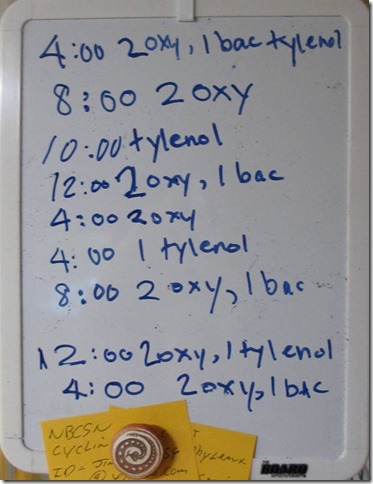 4:00 2 oxy, 1 bac tylenol
8:00 2 oxy
10:00 tylenol
12:00 2 oxy, 1 bac
4:00 2 oxy
4:00 1 tylenol
8:00 2 oxy, 1 bac
12:00 2 oxy, 1 tylenol
4:00 2 oxy, 1 bac
NBCSN
CYCLIN
ID=
THE BOARD